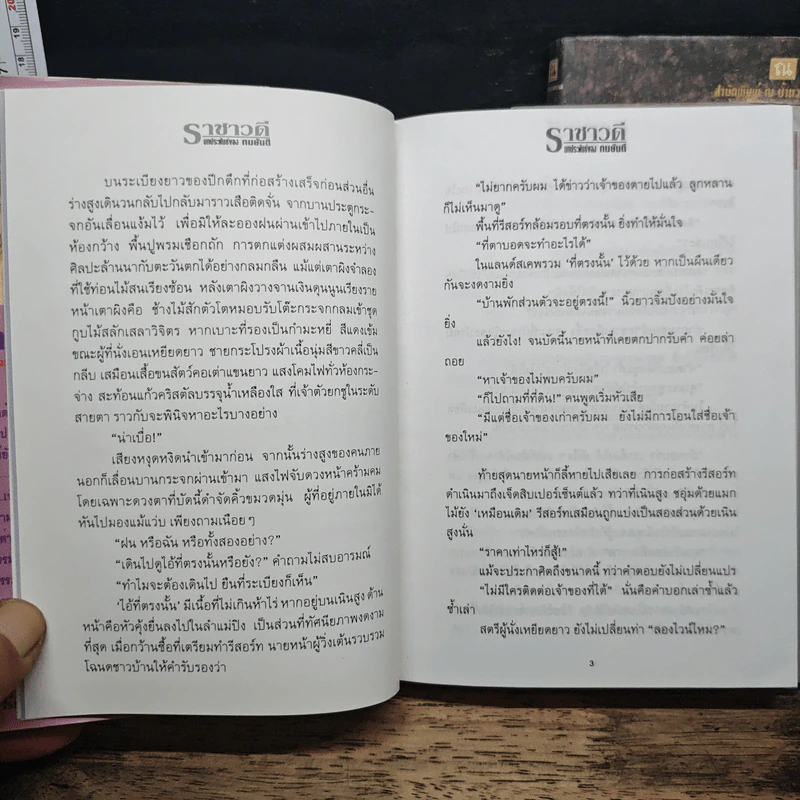 ราชาวดี
บทประพันธ์ของ ทมยันตี
บนระเบียงยาวของปีกตึกที่ก่อสร้างเสร็จก่อนส่วนอื่น
ร่างสูงเดินวนกลับไปกลับมาราวเสือติดจั่น จากบานประตูกระ-
จกอันเลื่อนแง้มไว้ เพื่อมิให้ละอองฝนผ่านเข้าไปภายในเป็น
ห้องกว้าง พื้นปูพรมเชือกถัก การตกแต่งผสมผสานระหว่าง
ศิลปะล้านนากับตะวันตกได้อย่างกลมกลืน แม้แต่เตาผิงจำลอง
ที่ใช้ท่อนไม้สนเรียงซ้อน หลังเตาผิงวางจานเงินดุนนูนเรียงราย
หน้าเตาผิงคือ ช้างไม้สักตัวโตหมอบรับโต๊ะกระจกกลมเข้าชุด
กูบไม้สลักเสลาวิจิตร หากเบาะที่รองเป็นกำมะหยี่ สีแดงเข้ม
ขณะผู้ที่นั่งเอนเหยียดยาว ชายกระโปรงผ้าเนื้อนุ่มสีขาวคลี่เป็น
กลีบ เสมือนเสื้อขนสัตว์คอเต่าแขนยาว แสงโคมไฟทั่วห้องกระ-
จ่าง สะท้อนแก้วคริสตัลบรรจุน้ำเหลืองใส ที่เจ้าตัวยกชูในระดับ
สายตา ราวกับจะพินิจหาอะไรบางอย่าง
“น่าเบื่อ!”
เสียงหงุดหงิดนำเข้ามาก่อน จากนั้นร่างสูงของคนภาย
นอกก็เลื่อนบานกระจกผ่านเข้ามา แสงไฟจับดวงหน้าคร้ามคม
โดยเฉพาะดวงตาที่บัดนี้ดำจัดคิ้วขมวดมุ่น ผู้ที่อยู่ภายในมิได้
หันไปมองแม้แว่บ เพียงถามเนือยๆ
“ฝน หรือฉัน หรือทั้งสองอย่าง?”
“เดินไปดูไอ้ที่ตรงนั้นหรือยัง?” คำถามไม่สบอารมณ์
“ทำไมจะต้องเดินไป ยืนที่ระเบียงก็เห็น”
‘ไอ้ที่ตรงนั้น’ มีเนื้อที่ไม่เกินห้าไร่ หากอยู่บนเนินสูง ด้าน
หน้าคือหัวคุ้งยื่นลงไปในลำแม่ปิง เป็นส่วนที่ทัศนียภาพงดงาม
ที่สุด เมื่อกว้านซื้อที่เตรียมทำรีสอร์ท นายหน้าผู้วิ่งเต้นรวบรวม
โฉนดชาวบ้านให้คำรับรองว่า
ราชาวดี
บทประพันธ์ของ ทมยันตี
“ไม่ยากครับผม ได้ข่าวว่าเจ้าของตายไปแล้ว ลูกหลาน
ก็ไม่เห็นมาดู”
พื้นที่รีสอร์ทล้อมรอบที่ตรงนั้น ยิ่งทำให้มั่นใจ
“ที่ตาบอดจะทำอะไรได้”
ในแลนด์สเคพรวม ‘ที่ตรงนั้น’ ไว้ด้วย หากเป็นผืนเดียว
กันจะงดงามยิ่ง
“บ้านพักส่วนตัวจะอยู่ตรงนี้!” นิ้วยาวจิ้มปังอย่างมั่นใจ
ยิ่ง
แล้วยังไง! จนบัดนี้นายหน้าที่เคยตกปากรับคำ ค่อยล่า
ถอย
“หาเจ้าของไม่พบครับผม”
“ก็ไปถามที่ที่ดิน!” คนพูดเริ่มหัวเสีย
“มีแต่ชื่อเจ้าของเก่าครับผม ยังไม่มีการโอนใส่ชื่อเจ้า
ของใหม่”
ท้ายสุดนายหน้าก็ลี้หายไปเสียเลย การก่อสร้างรีสอร์ท
ดำเนินมาถึงเจ็ดสิบเปอร์เซ็นต์แล้ว ทว่าที่เนินสูง ชอุ่มด้วยแมก
ไม้ยัง ‘เหมือนเดิม’ รีสอร์ทเสมือนถูกแบ่งเป็นสองส่วนด้วยเนิน
สูงนั่น
“ราคาเท่าไหร่ก็สู้!”
แม้จะประกาศิตถึงขนาดนี้ ทว่าคำตอบยังไม่เปลี่ยนแปร
“ไม่มีใครติดต่อเจ้าของที่ได้” นั่นคือคำบอกเล่าซ้ำแล้ว
ซ้ำเล่า
สตรีผู้นั่งเหยียดยาว ยังไม่เปลี่ยนท่า “ลองไวน์ไหม?”
3
ณ
สำนักพิมพ์ ณ บ้าน
17
18
19
20